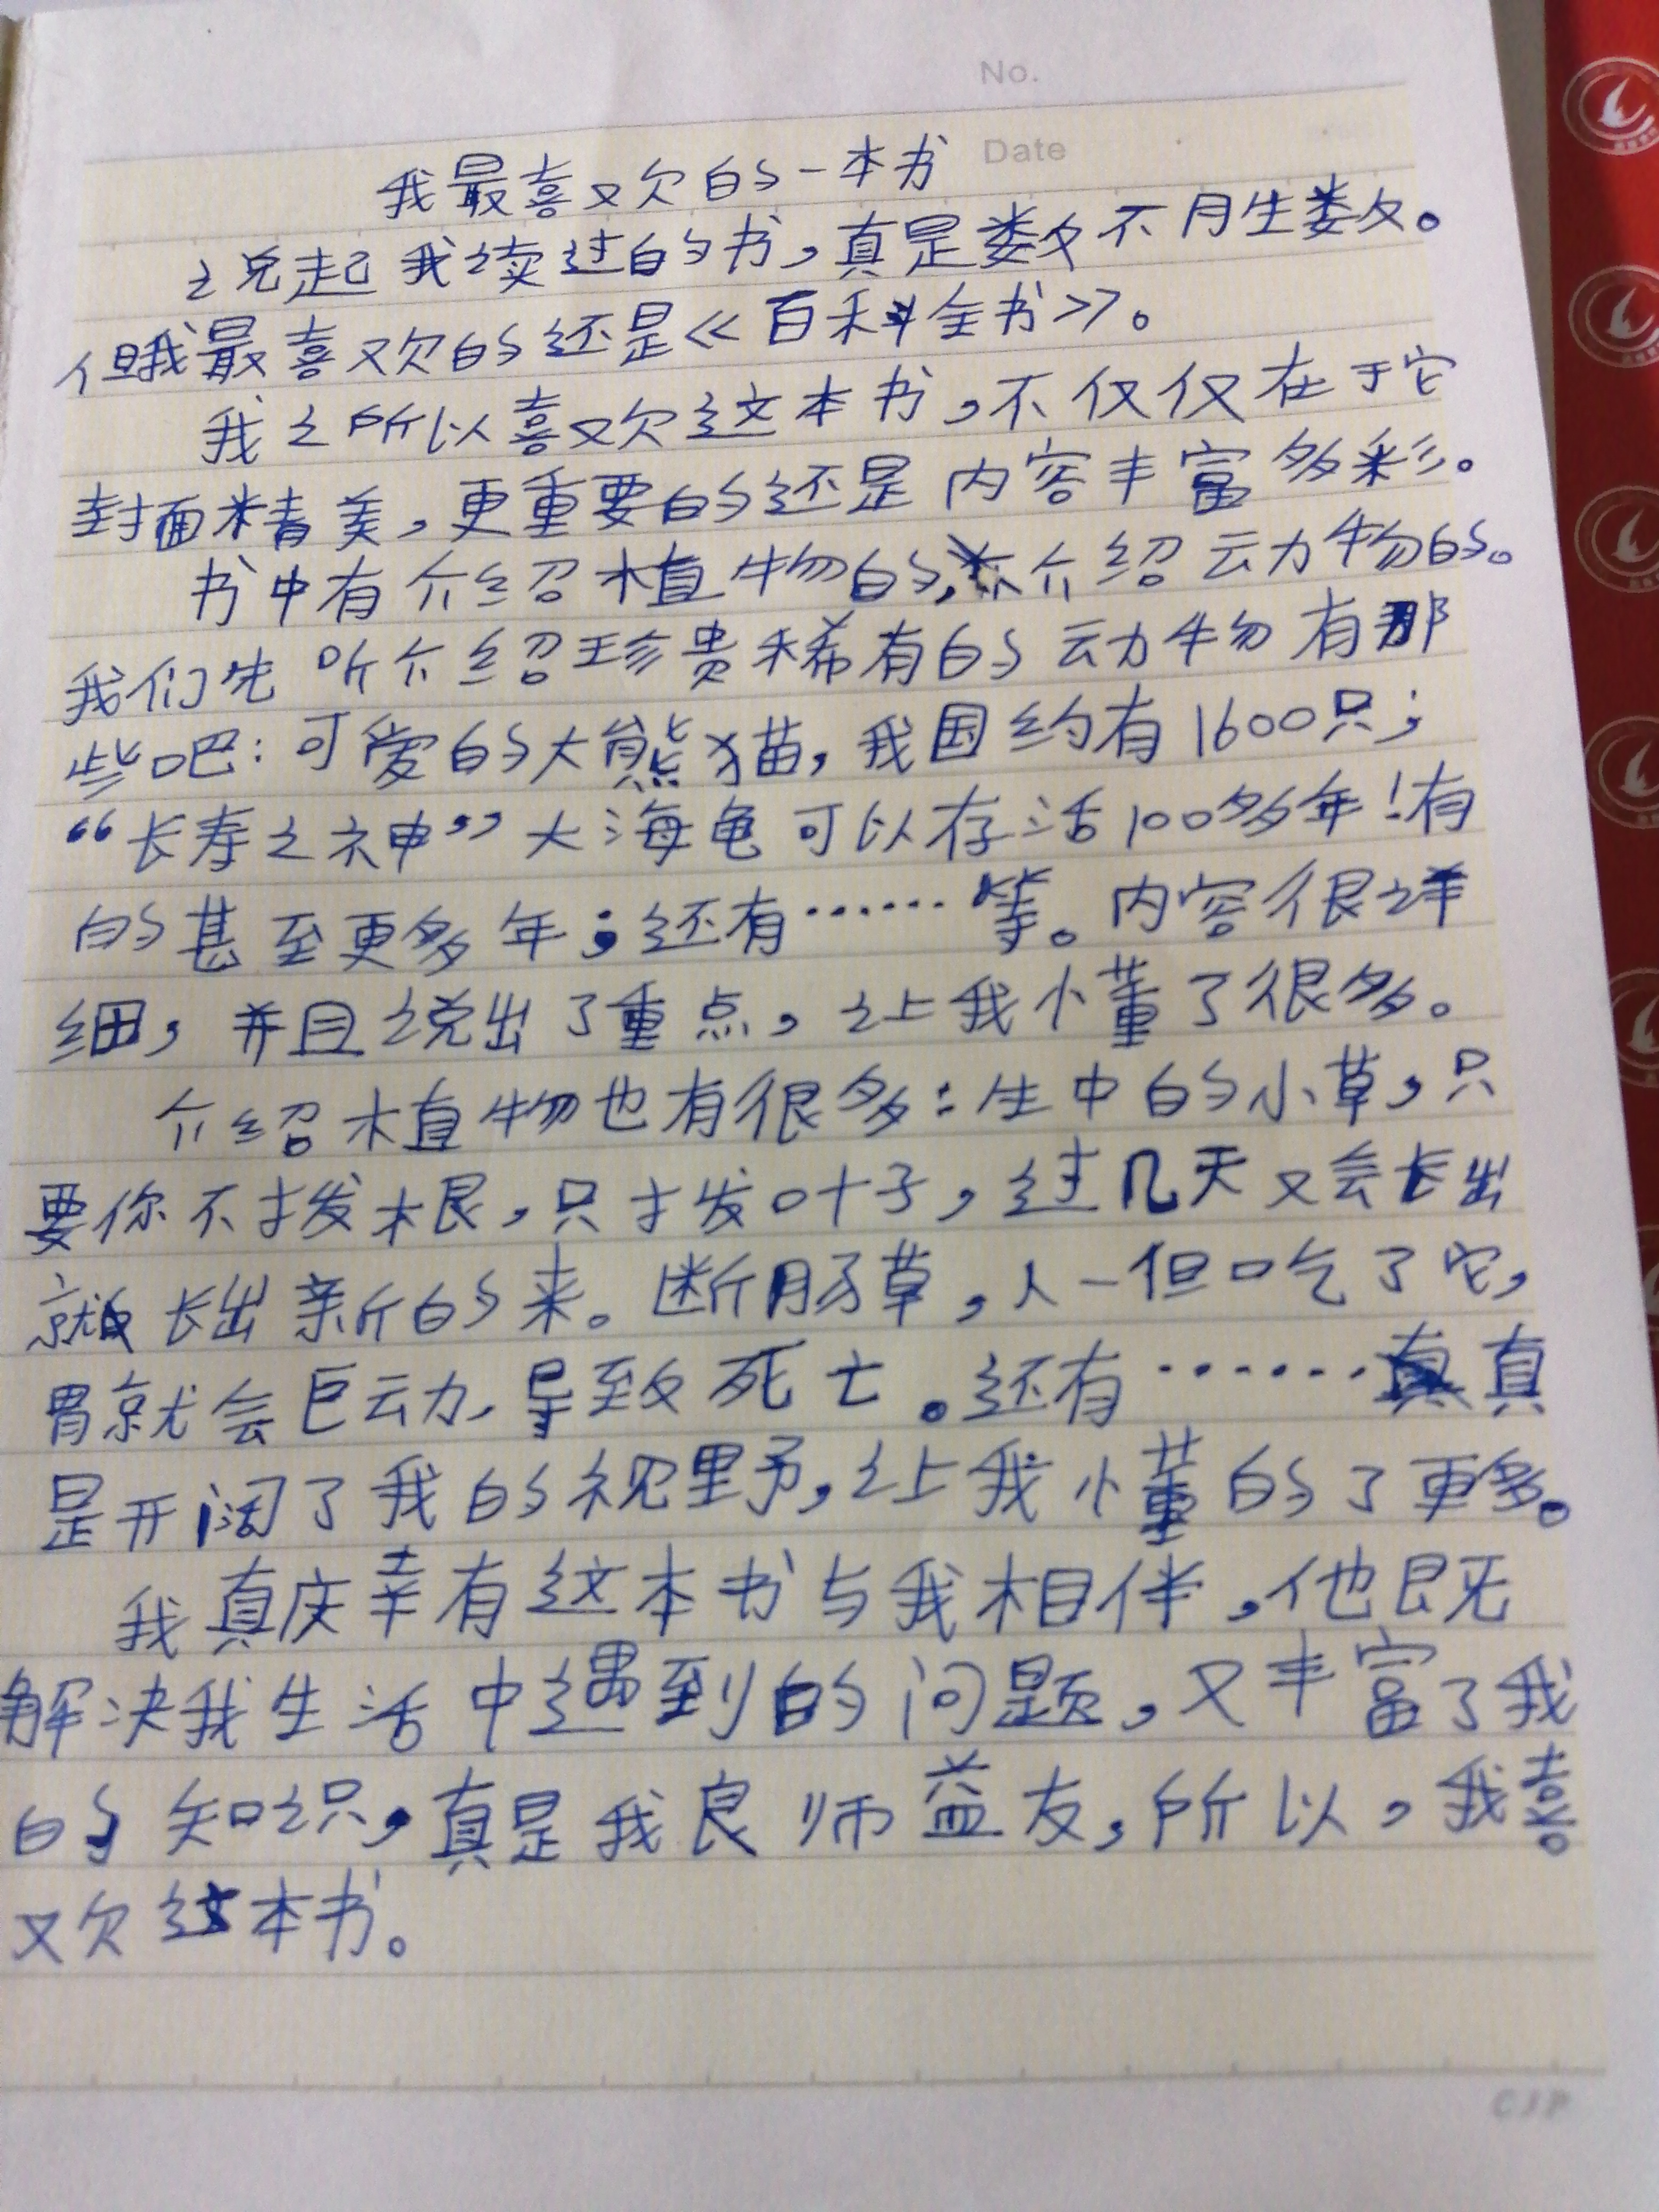 No.
Date
我最喜欢的一本书
说起我读过的书，真是数不胜数。
但我最喜欢的还是《百科全书》。
我之所以喜欢这本书，不仅仅在于它
封面精美，更重要的还是内容丰富多彩。
书中有介绍植物的，介绍动物的。
我们先听介绍珍贵稀有的动物有那
些吧：可爱的大熊猫，我国约有1600只；
“长寿之神”大海龟可以存活100多年！有
的甚至更多年；还有……等。内容很详
细，并且说出了重点，让我懂了很多。
介绍植物也有很多：生中的小草，只
要你不拨根，只拨叶子，过几天又会长出
就长出新的来。断肠草，人一但吃了它，
胃就会巨动，导致死亡。还有……真
是开阔了我的视野，让我懂的了更多。
我真庆幸有这本书与我相伴，他既
解决我生活中遇到的问题，又丰富了我
的知识，真是我良师益友，所以，我喜
欢这本书。